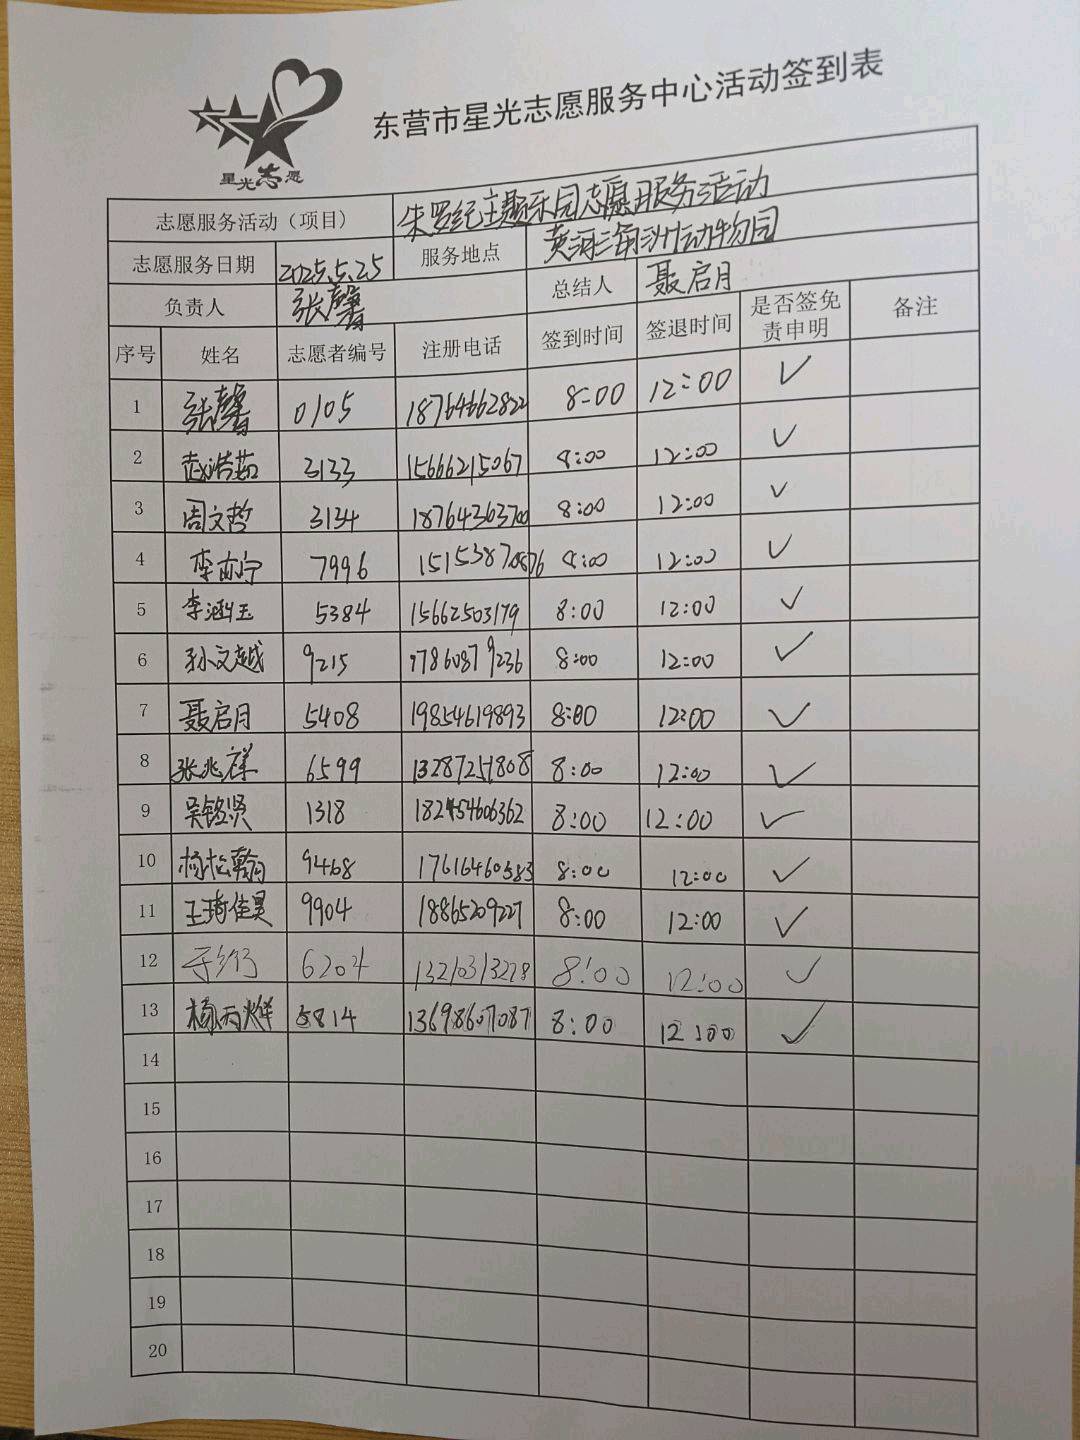 东营市星光志愿服务中心活动签到表
星光志愿
志愿服务活动（项目） 朱罗纪主题乐园志愿服务活动
志愿服务日期 2025.5.25 服务地点 黄河三角洲动物园
负责人 张馨 总结人 聂启月
序号 姓名 志愿者编号 注册电话 签到时间 签退时间 是否签免责申明 备注
1 张馨 0105 18764662822 8:00 12:00 ✓
2 赵浩茹 3133 15666215067 8:00 12:00 ✓
3 周文哲 3134 18764363700 8:00 12:00 ✓
4 李亦宁 7996 15153870876 8:00 12:00 ✓
5 李涵玉 5384 15662503179 8:00 12:00 ✓
6 孙文越 9215 17860879236 8:00 12:00 ✓
7 聂启月 5408 19854619893 8:00 12:00 ✓
8 张兆祥 6599 13287251808 8:00 12:00 ✓
9 吴铭贤 1318 182454606362 8:00 12:00 ✓
10 杨松翰 9468 17616460583 8:00 12:00 ✓
11 王琦佳昊 9904 18865209227 8:00 12:00 ✓
12 6204 13210313228 8:00 12:00 ✓
13 杨丙烨 5814 13698607087 8:00 12:00 ✓
14
15
16
17
18
19
20